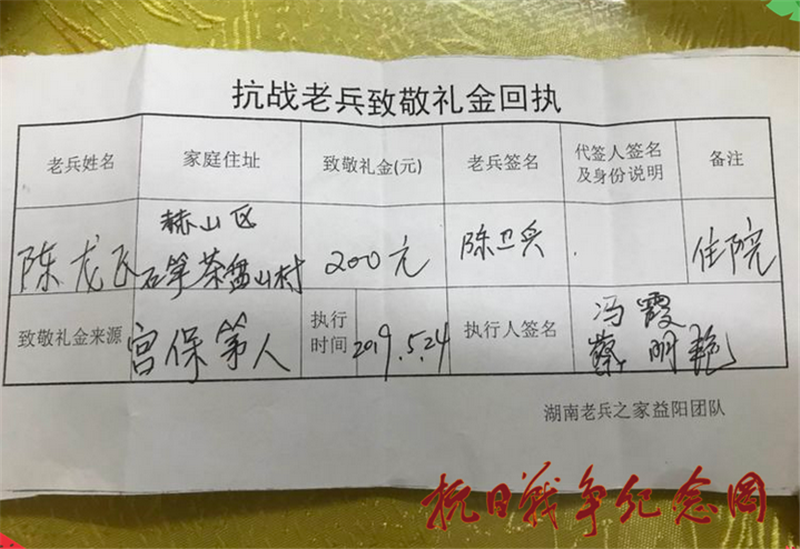 抗战老兵致敬礼金回执
老兵姓名 家庭住址 致敬礼金(元) 老兵签名 代签人签名及身份说明 备注
陈龙飞 赫山区 200元 陈卫兵 住院
石笋茶盘山村
致敬礼金来源 宫保第人 执行时间 2019.5.24 执行人签名 冯霞
蔡明艳
湖南老兵之家益阳团队
抗日战争纪念网